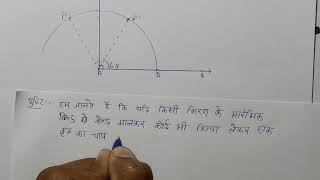 60°
A D B
पुष्टि:- हम जानते हैं कि यदि किसी किरण के प्रारंभिक
बिन्दु को केन्द्र मानकर कोई भी त्रिज्या लेकर एक
वृत का चाप